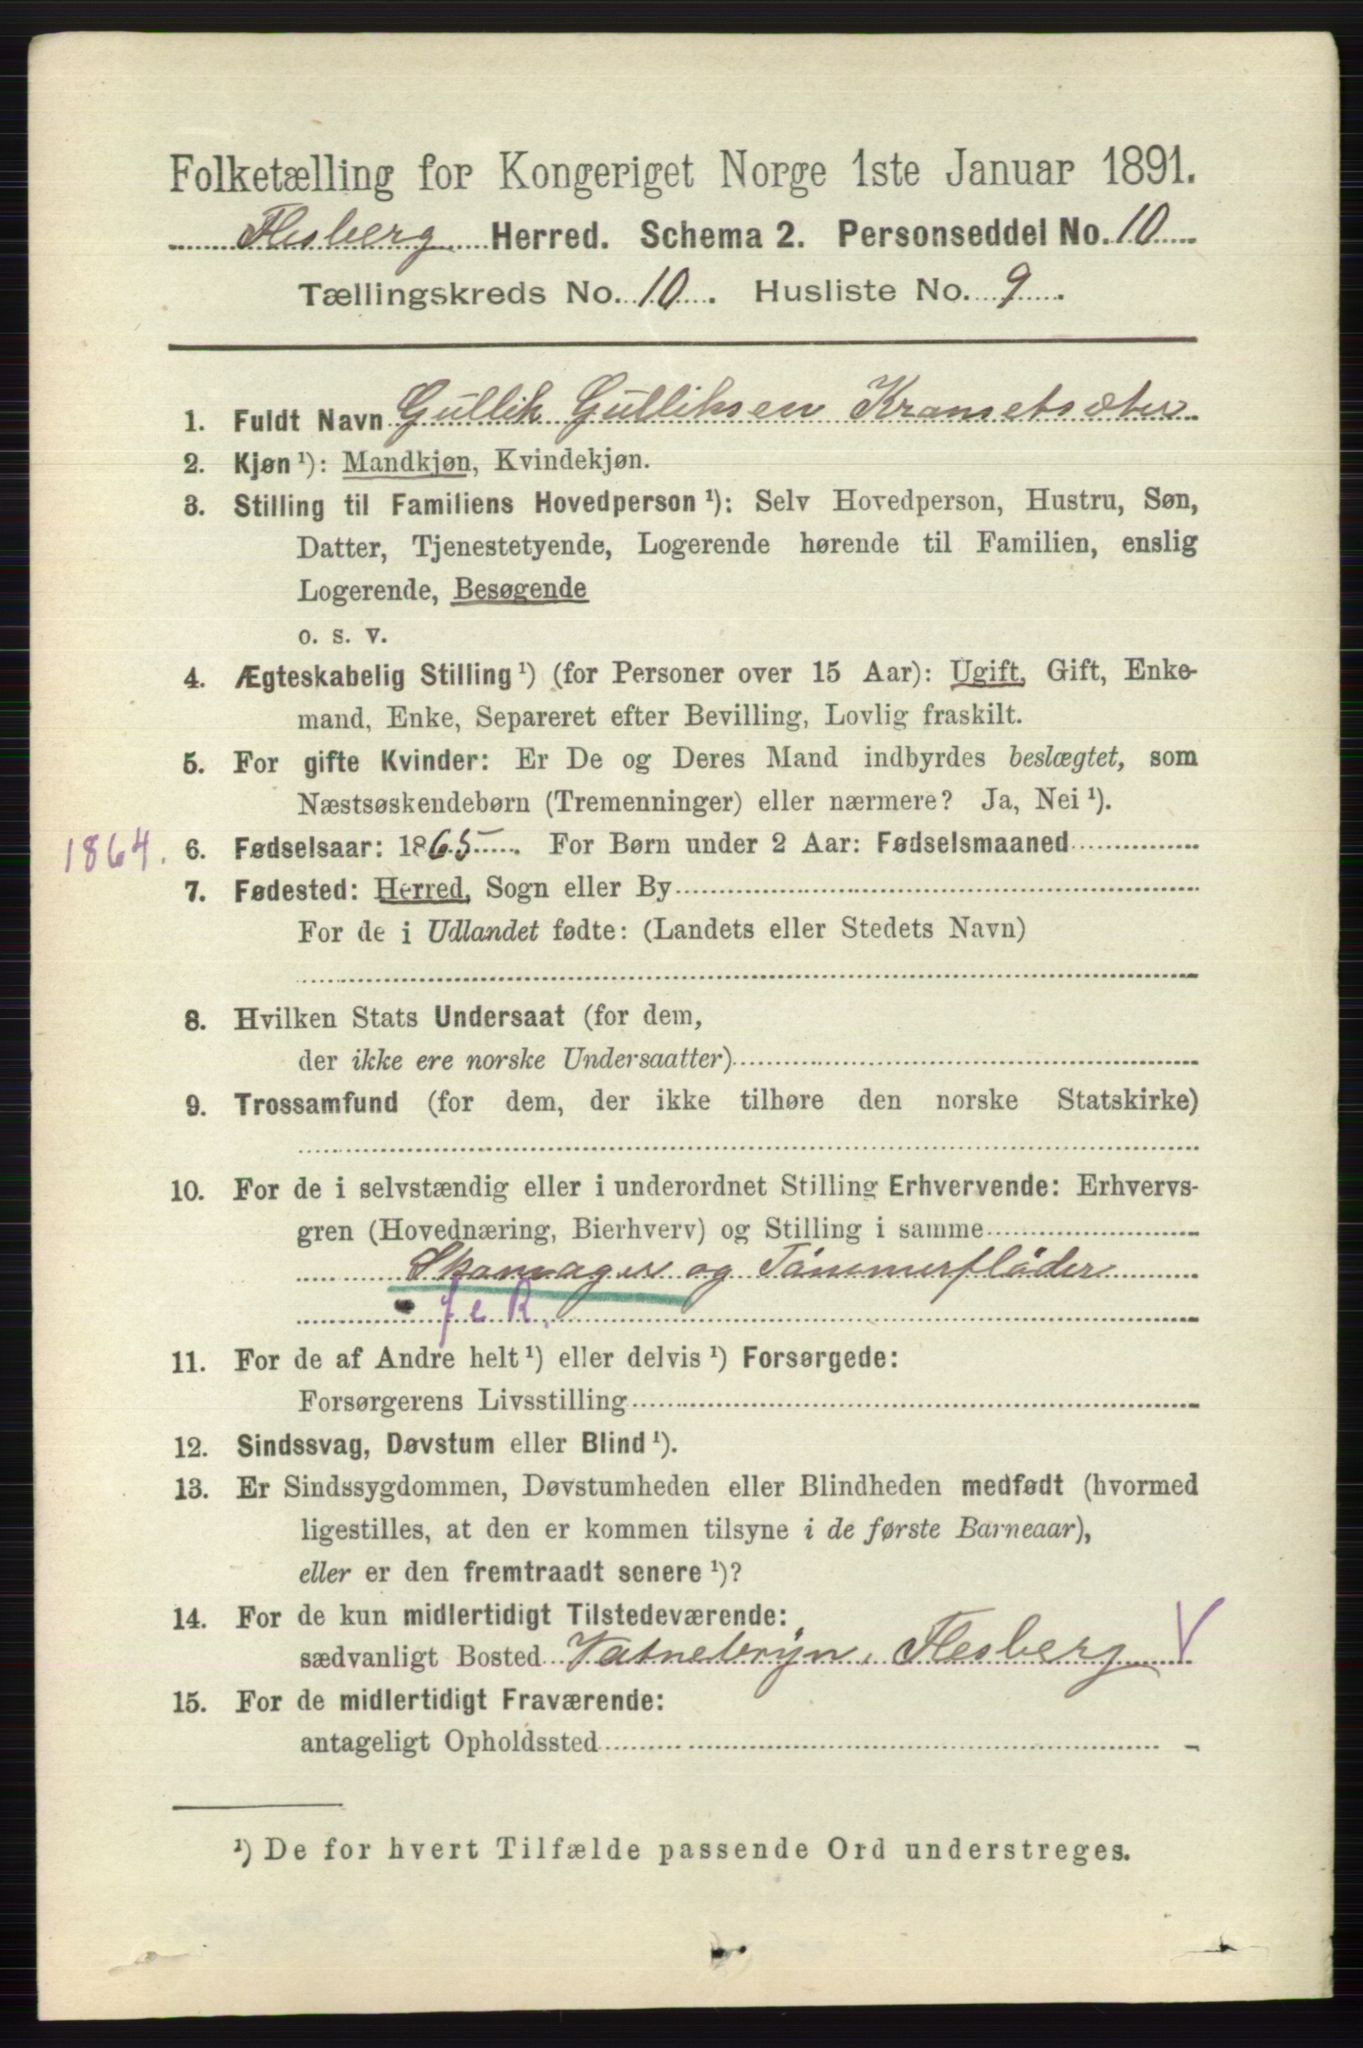 Folketælling for Kongeriget Norge 1ste Januar 1891.
Flesberg Herred. Schema 2. Personseddel No. 10
Tællingskreds No. 10. Husliste No. 9.
1. Fuldt Navn Gullik Gulliksen
2. Kjøn ¹): Mandkjøn, Kvindekjøn.
3. Stilling til Familiens Hovedperson ¹): Selv Hovedperson, Hustru, Søn,
Datter, Tjenestetyende, Logerende hørende til Familien, enslig
Logerende, Besøgende
o. s. v.
4. Ægteskabelig Stilling ¹) (for Personer over 15 Aar): Ugift, Gift, Enke-
mand, Enke, Separeret efter Bevilling, Lovlig fraskilt.
5. For gifte Kvinder: Er De og Deres Mand indbyrdes beslægtet, som
Næstsøskendebørn (Tremenninger) eller nærmere? Ja, Nei ¹).
1864. 6. Fødselsaar: 1865. For Børn under 2 Aar: Fødselsmaaned
7. Fødested: Herred, Sogn eller By
For de i Udlandet fødte: (Landets eller Stedets Navn)
8. Hvilken Stats Undersaat (for dem,
der ikke ere norske Undersaatter)
9. Trossamfund (for dem, der ikke tilhøre den norske Statskirke)
10. For de i selvstændig eller i underordnet Stilling Erhvervende: Erhvervs-
gren (Hovednæring, Bierhverv) og Stilling i samme
Skomager og Tømmerfløder
f e R.
11. For de af Andre helt ¹) eller delvis ¹) Forsørgede:
Forsørgerens Livsstilling
12. Sindssvag, Døvstum eller Blind ¹).
13. Er Sindssygdommen, Døvstumheden eller Blindheden medfødt (hvormed
ligestilles, at den er kommen tilsyne i de første Barneaar),
eller er den fremtraadt senere ¹)?
14. For de kun midlertidigt Tilstedeværende:
sædvanligt Bosted Vatnebryn, Flesberg V
15. For de midlertidigt Fraværende:
antageligt Opholdssted
¹) De for hvert Tilfælde passende Ord understreges.